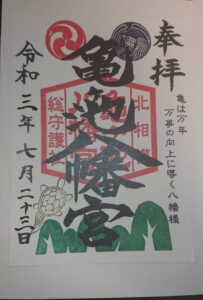 奉拝
亀は万年
万事の向上に導く八幡様
北相模
総守護社
亀ヶ池八幡宮
令和三年七月二十三日